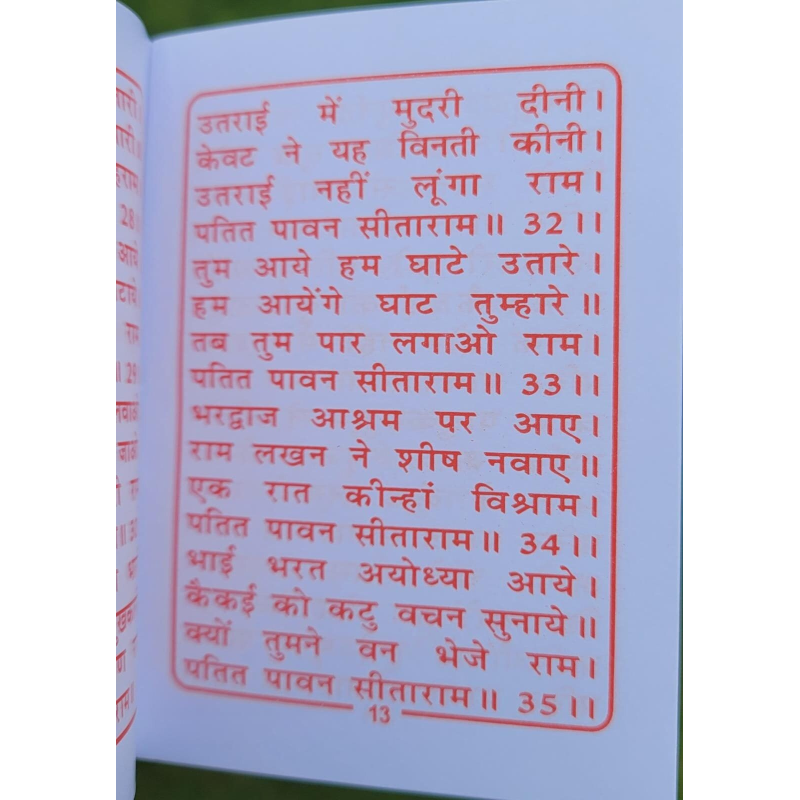 उतराई में मुदरी दीनी।
केवट ने यह विनती कीनी।
उतराई नहीं लूंगा राम।
पतित पावन सीताराम॥ 32।।
तुम आये हम घाटे उतारे।
हम आयेंगे घाट तुम्हारे॥
तब तुम पार लगाओ राम।
पतित पावन सीताराम॥ 33।।
भरद्वाज आश्रम पर आए।
राम लखन ने शीष नवाए॥
एक रात कीन्हां विश्राम।
पतित पावन सीताराम॥ 34।।
भाई भरत अयोध्या आये।
कैकई को कटु वचन सुनाये॥
क्यों तुमने वन भेजे राम।
पतित पावन सीताराम॥ 35।।
13